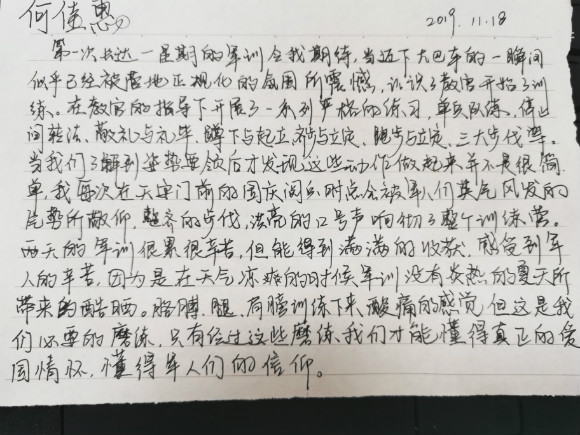 何佳惠
2019.11.18
第一次长达一星期的军训令我期待,当迈下大巴车的一瞬间
似乎已经被营地正规化的氛围所震憾,认识了教官开始了训
练。在教官的指导下开展了一系列严格的练习,单兵队练,停止
间转法、敬礼与礼毕、蹲下与起立、齐步与立定、跑步与立定、三大步伐等。
当我们了解到姿势要领后才发现这些动作做起来并不是很简
单,我每次在天安门前的国庆阅兵时点会被军人们英气风发的
气势所敬仰,整齐的步伐,洪亮的口号声响彻了整个训练营。
两天的军训很累很辛苦,但能得到满满的收获,感受到军
人的辛苦,因为是在天气凉爽的时候军训没有炎热的夏天所
带来的酷晒。胳膊、腿、肩膀训练下来酸痛的感觉但这是我
们必要的磨练,只有经过这些磨练我们才能懂得真正的爱
国情怀,懂得军人们的信仰。